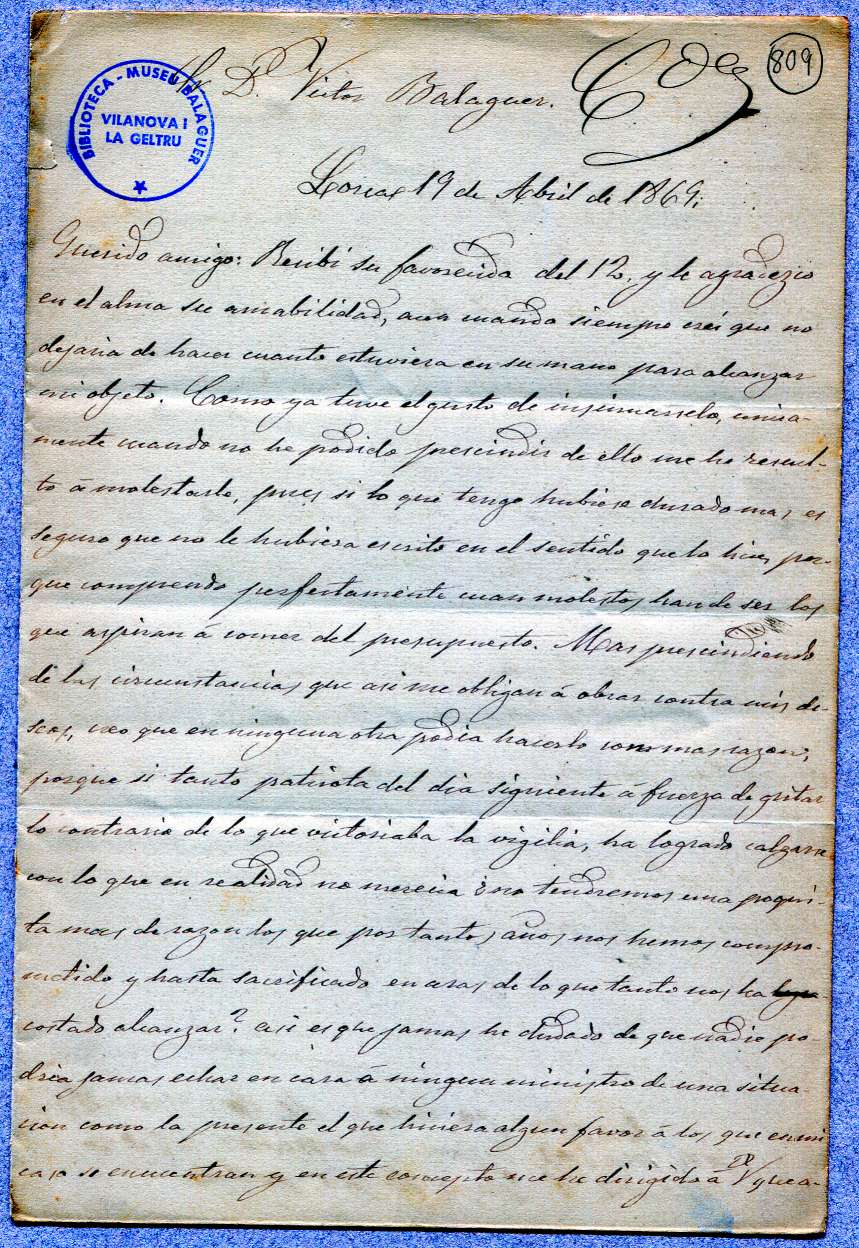 809
BIBLIOTECA - MUSEU BALAGUER
VILANOVA I
LA GELTRU
Sr. D. Victor Balaguer.
Lorca 19 de Abril de 1869.
Querido amigo: Recibí su favorecida del 12, y le agradezco
en el alma su amabilidad, aun cuando siempre creí que no
dejaria de hacer cuanto estuviera en su mano para alcanzar
mi objeto. Como ya tuve el gusto de insinuarselo, unica-
mente cuando no he podido prescindir de ello me he resuel-
to á molestarle, pues si lo que tengo hubiese durado mas es
seguro que no le hubiera escrito en el sentido que lo hice, por-
que comprendo perfectamente cuan molestos han de ser los
que aspiran á comer del presupuesto. Mas prescindiendo
de las circunstancias que asi me obligan á obrar contra mis de-
seos, creo que en ninguna otra podia hacerlo con mas razon,
porque si tanto patriota del dia siguiente á fuerza de gritar
lo contrario de lo que victoriaba la vigilia, ha logrado calzarse
con lo que en realidad no merecia ¿no tendremos una poqui-
ta mas de razon los que por tantos años nos hemos compro-
metido y hasta sacrificado en aras de lo que tanto nos ha
costado alcanzar? asi es que jamas he dudado de que nadie po-
dria jamas echar en cara á ningun ministro de una situa-
cion como la presente el que hiciera algun favor á los que en mi
caso se encuentran y en este concepto me he dirigido á V que a-